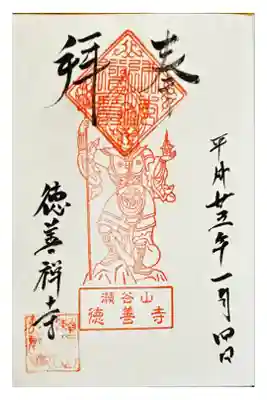 奉拝
平成廿三年一月四日
瀬谷山
徳善寺
徳善禅寺